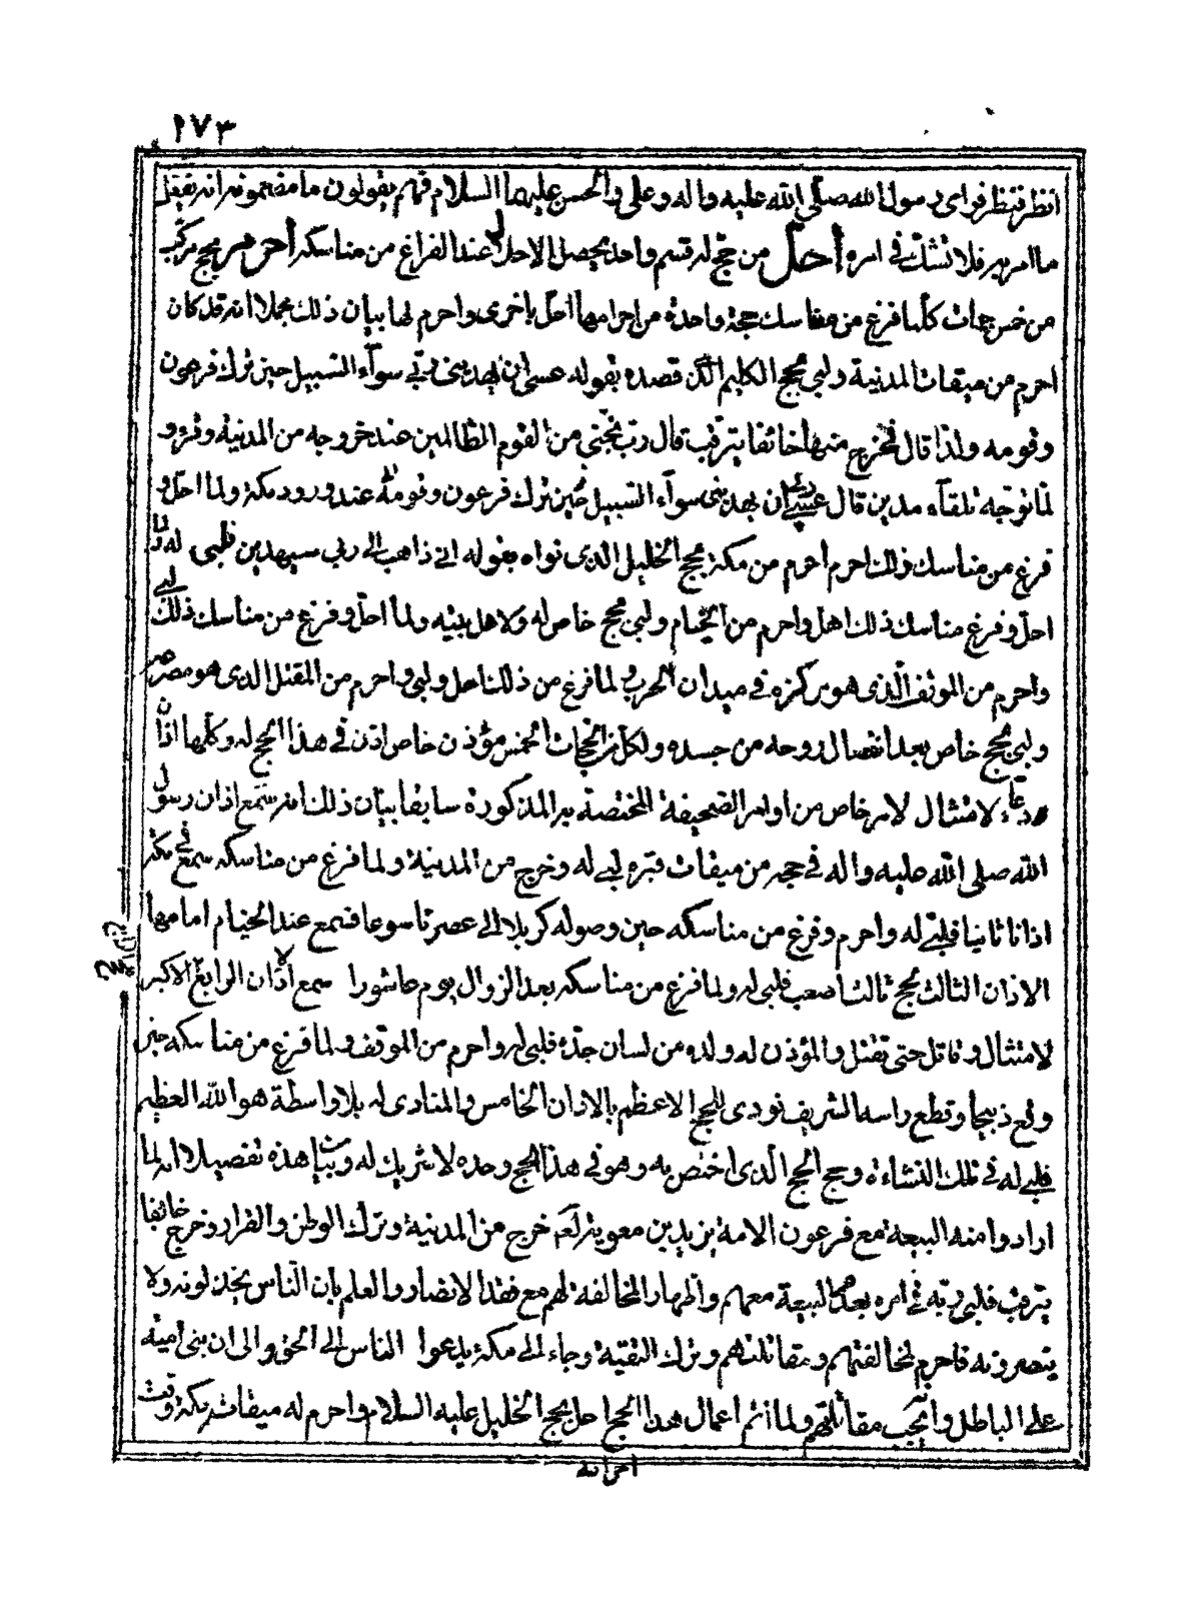 ١٧٣
انظر فنظر فراى رسول الله صلى الله عليه واله وعلى والحسن عليهما السلام فهم يقولون ما مضمونه انه
ما امر به فلا تشك فى امره احل من حج له قسم واحد يحصل الاحلال عند الفراغ من مناسكه احرم بحج مركب
من خمس حجات كلما فرغ من مناسك حجة واحدة من احرامها احل باخرى واحرم لها بيان ذلك مجملا انه قد كان
احرم من ميقات المدينة ولبى بحج الكليم الذى قصده بقوله عسى ان يهدينى ربى سواء السبيل حين ترك فرعون
وقومه ولذا قال فخرج منها خائفا يترقب قال رب نجنى من القوم الظالمين عند خروجه من المدينة وقرء و
لما توجه تلقاء مدين قال عسى ربى ان يهدينى سواء السبيل حين ترك فرعون وقومه عند ورود مكة ولما احل و
فرغ من مناسك ذلك احرم احرم من مكة بحج الخليل الذى نواه بقوله انى ذاهب الى ربى سيهدين فلبى له ولما
احل وفرغ مناسك ذلك اهل واحرم من الخيام ولبى بحج خاص له ولاهل بيته ولما احل وفرغ من مناسك ذلك لبى
واحرم من الموقف الذى هو مركزه فى ميدان الحرب ولما فرغ من ذلك احل ولبى واحرم من المقتل الذى هو مصرعه
ولبى بحج خاص بعد انفصال روحه من جسده ولكل من الحجات الخمس مؤذن خاص اذن فى هذا الحج له وكلها اذان
ودعاء لامتثال لامر خاص من اوامر الصحيفة المختصة به المذكورة سابقا بيان ذلك انه سمع اذان رسول
الله صلى الله عليه واله فى حجه من ميقات قبره لبى له وخرج من المدينة ولما فرغ من مناسكه سمع فى مكة
اذانا ثانيا فلبى له واحرم وفرغ من مناسكه حين وصوله كربلا الى عصر تاسوعا فسمع عند الخيام امامها
الاذان الثالث بحج ثالث اصعب فلبى له ولما فرغ من مناسكه بعد الزوال يوم عاشورا سمع الاذان الرابع الاكبر
للحج الرابع
لامتثال وقاتل حتى تقتل والمؤذن له ولده من لسان جده فلبى له واحرم من الموقف ولما فرغ من مناسكه حين
وقع ذبيحا وقطع راسه الشريف نودى للحج الاعظم بالاذان الخامس والمنادى له بلا واسطة هو الله العظيم
فلبى له فى تلك النشاءة وحج الحج الذى اختص به وهو فى هذا الحج وحده لا شريك له وبيان هذه تفصيلا انه لما
ارادوا منه البيعة مع فرعون الامة يزيد بن معوية لعنه خرج من المدينة وترك الوطن والقرار وخرج خائفا
يترقب فلبى ربه فى امره بعدم البيعة معهم واظهار المخالفة لهم مع فقد الانصار والعلم بان الناس يخذلونه ولا
ينصرونه فاحرم لمخالفتهم ومقاتلتهم وترك التقية وجاء الى مكة يدعوا الناس الى الحق والى ان بنى امية
على الباطل وانه يجب مقاتلتهم ولما اتم اعمال هذا الحج احل بحج الخليل عليه السلام واحرم له ميقاته مكة وقت
احرامه